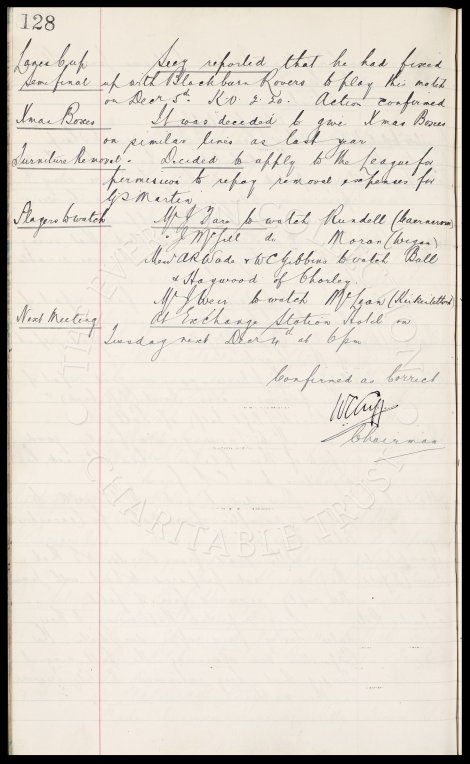 128
Lancs Cup Secy reported that he had fixed
Semi final up with Blackburn Rovers to play this match
on Decr 5th. K.O. 2.20. Action confirmed
Xmas Boxes It was decided to give Xmas Boxes
on similar lines as last year
Furniture Removal. Decided to apply to the League for
permission to repay removal expenses for
Martin
Players to watch Mr J to watch Rundell (Caernarvon)
" J McGill do Moran (Wigan)
Messrs A R Wade & W C Gibbins to watch Ball
& Haywood of Chorley
Mr J Weir to watch McLean
Next Meeting At Exchange Station Hotel on
Tuesday next Decr 4th at 6pm
Confirmed as Correct
W C Cuff
Chairman
CHARITABLE TRUST